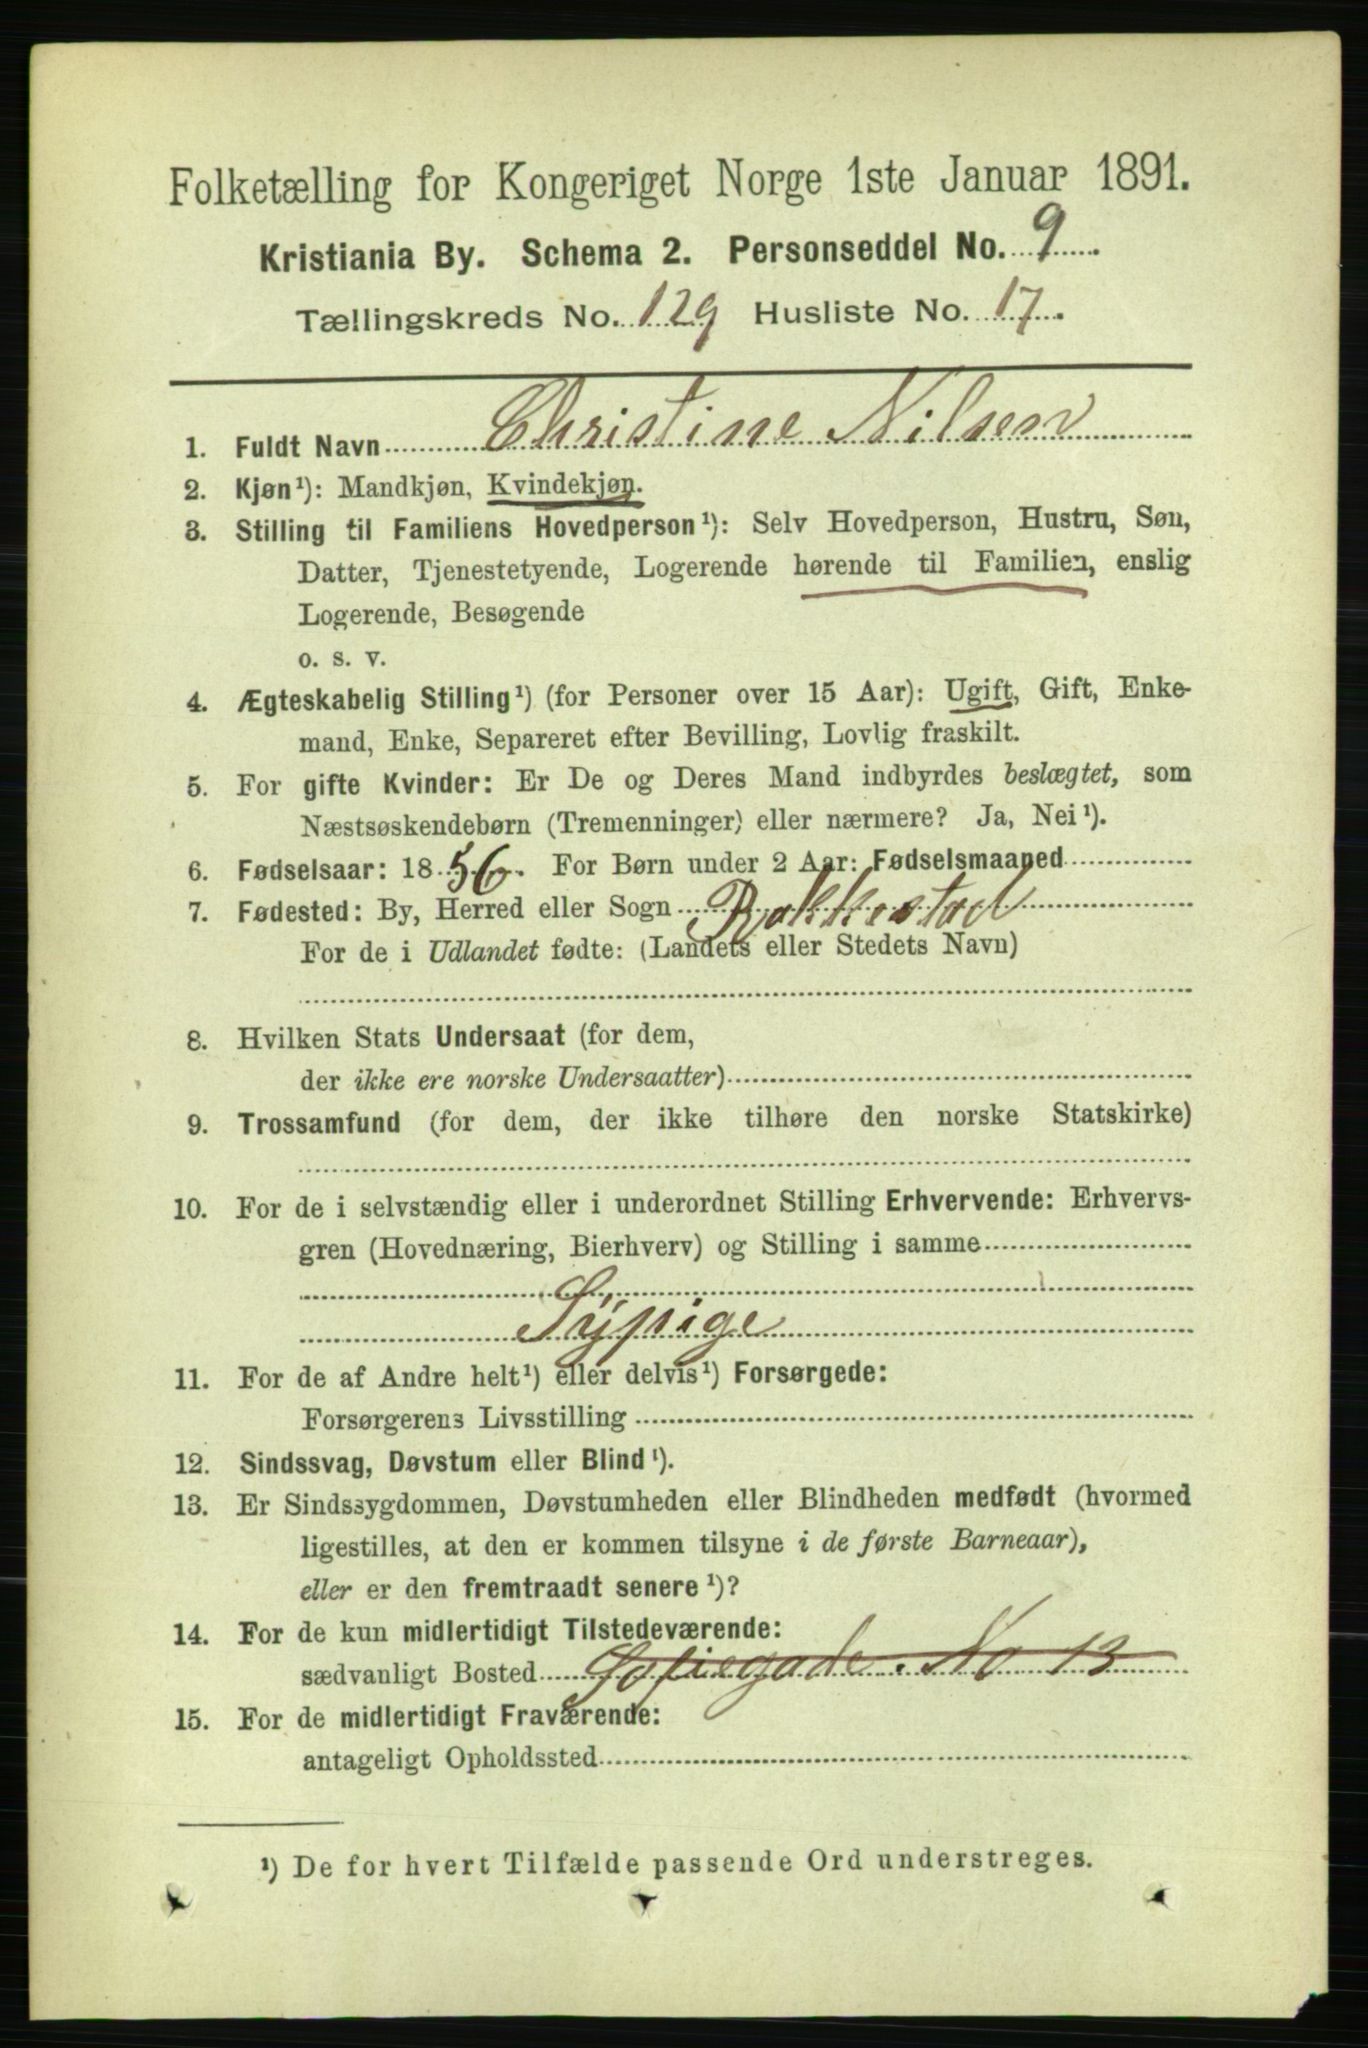 Folketælling for Kongeriget Norge 1ste Januar 1891.
Kristiania By. Schema 2. Personseddel No. 9
Tællingskreds No. 129 Husliste No. 17.
1. Fuldt Navn Christine Nilsen
2. Kjøn¹): Mandkjøn, Kvindekjøn.
3. Stilling til Familiens Hovedperson¹): Selv Hovedperson, Hustru, Søn,
Datter, Tjenestetyende, Logerende hørende til Familien, enslig
Logerende, Besøgende
o. s. v.
4. Ægteskabelig Stilling¹) (for Personer over 15 Aar): Ugift, Gift, Enke-
mand, Enke, Separeret efter Bevilling, Lovlig fraskilt.
5. For gifte Kvinder: Er De og Deres Mand indbyrdes beslægtet, som
Næstsøskendebørn (Tremenninger) eller nærmere? Ja, Nei¹).
6. Fødselsaar: 1856. For Børn under 2 Aar: Fødselsmaaned
7. Fødested: By, Herred eller Sogn Rakkestad
For de i Udlandet fødte: (Landets eller Stedets Navn)
8. Hvilken Stats Undersaat (for dem,
der ikke ere norske Undersaatter)
9. Trossamfund (for dem, der ikke tilhøre den norske Statskirke)
10. For de i selvstændig eller i underordnet Stilling Erhvervende: Erhvervs-
gren (Hovednæring, Bierhverv) og Stilling i samme
Sypige
11. For de af Andre helt¹) eller delvis¹) Forsørgede:
Forsørgerens Livsstilling
12. Sindssvag, Døvstum eller Blind¹).
13. Er Sindssygdommen, Døvstumheden eller Blindheden medfødt (hvormed
ligestilles, at den er kommen tilsyne i de første Barneaar),
eller er den fremtraadt senere¹)?
14. For de kun midlertidigt Tilstedeværende:
sædvanligt Bosted Sofiegade. No 13
15. For de midlertidigt Fraværende:
antageligt Opholdssted
¹) De for hvert Tilfælde passende Ord understreges.